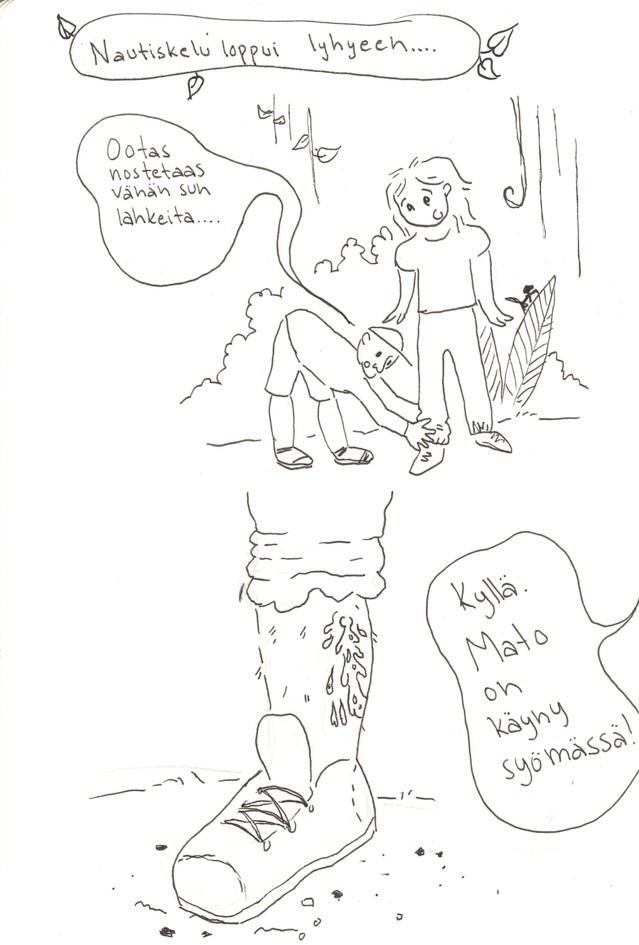 Nautiskelu loppui lyhyeen....
Ootas
nostetaas
vähän sun
lahkeita....
Kyllä.
Mato
on
käyny
syömässä!